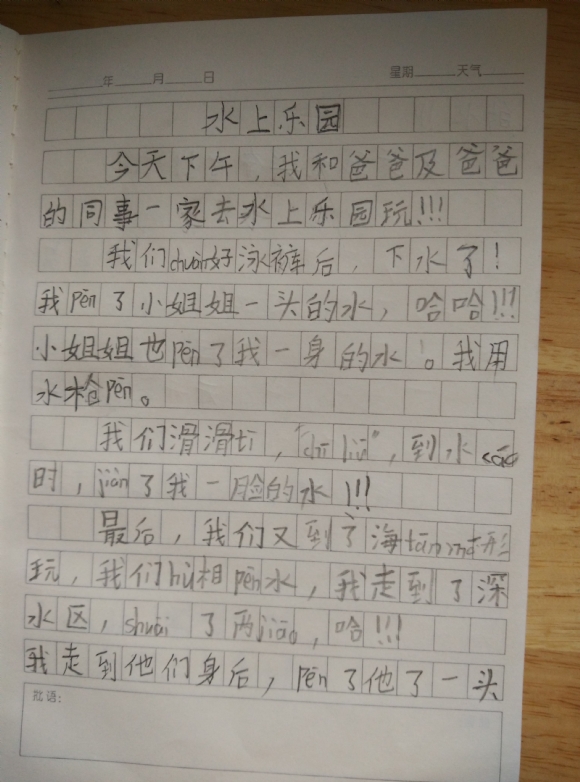 年 月 日 星期 天气
水上乐园
今天下午，我和爸爸及爸爸
的同事一家去水上乐园玩!!!
我们chuān好泳裤后，下水了！
我pēn了小姐姐一头的水，哈哈!!!
小姐姐也pēn了我一身的水。我用
水枪pēn。
我们滑滑tī，"chī liū"，到水cáo
时，jiàn了我一脸的水!!!
最后，我们又到了海tān
玩，我们hù相pēn水，我走到了深
水区，shuāi了两jiāo，哈!!!
我走到他们身后，pēn了他了一头
批语：